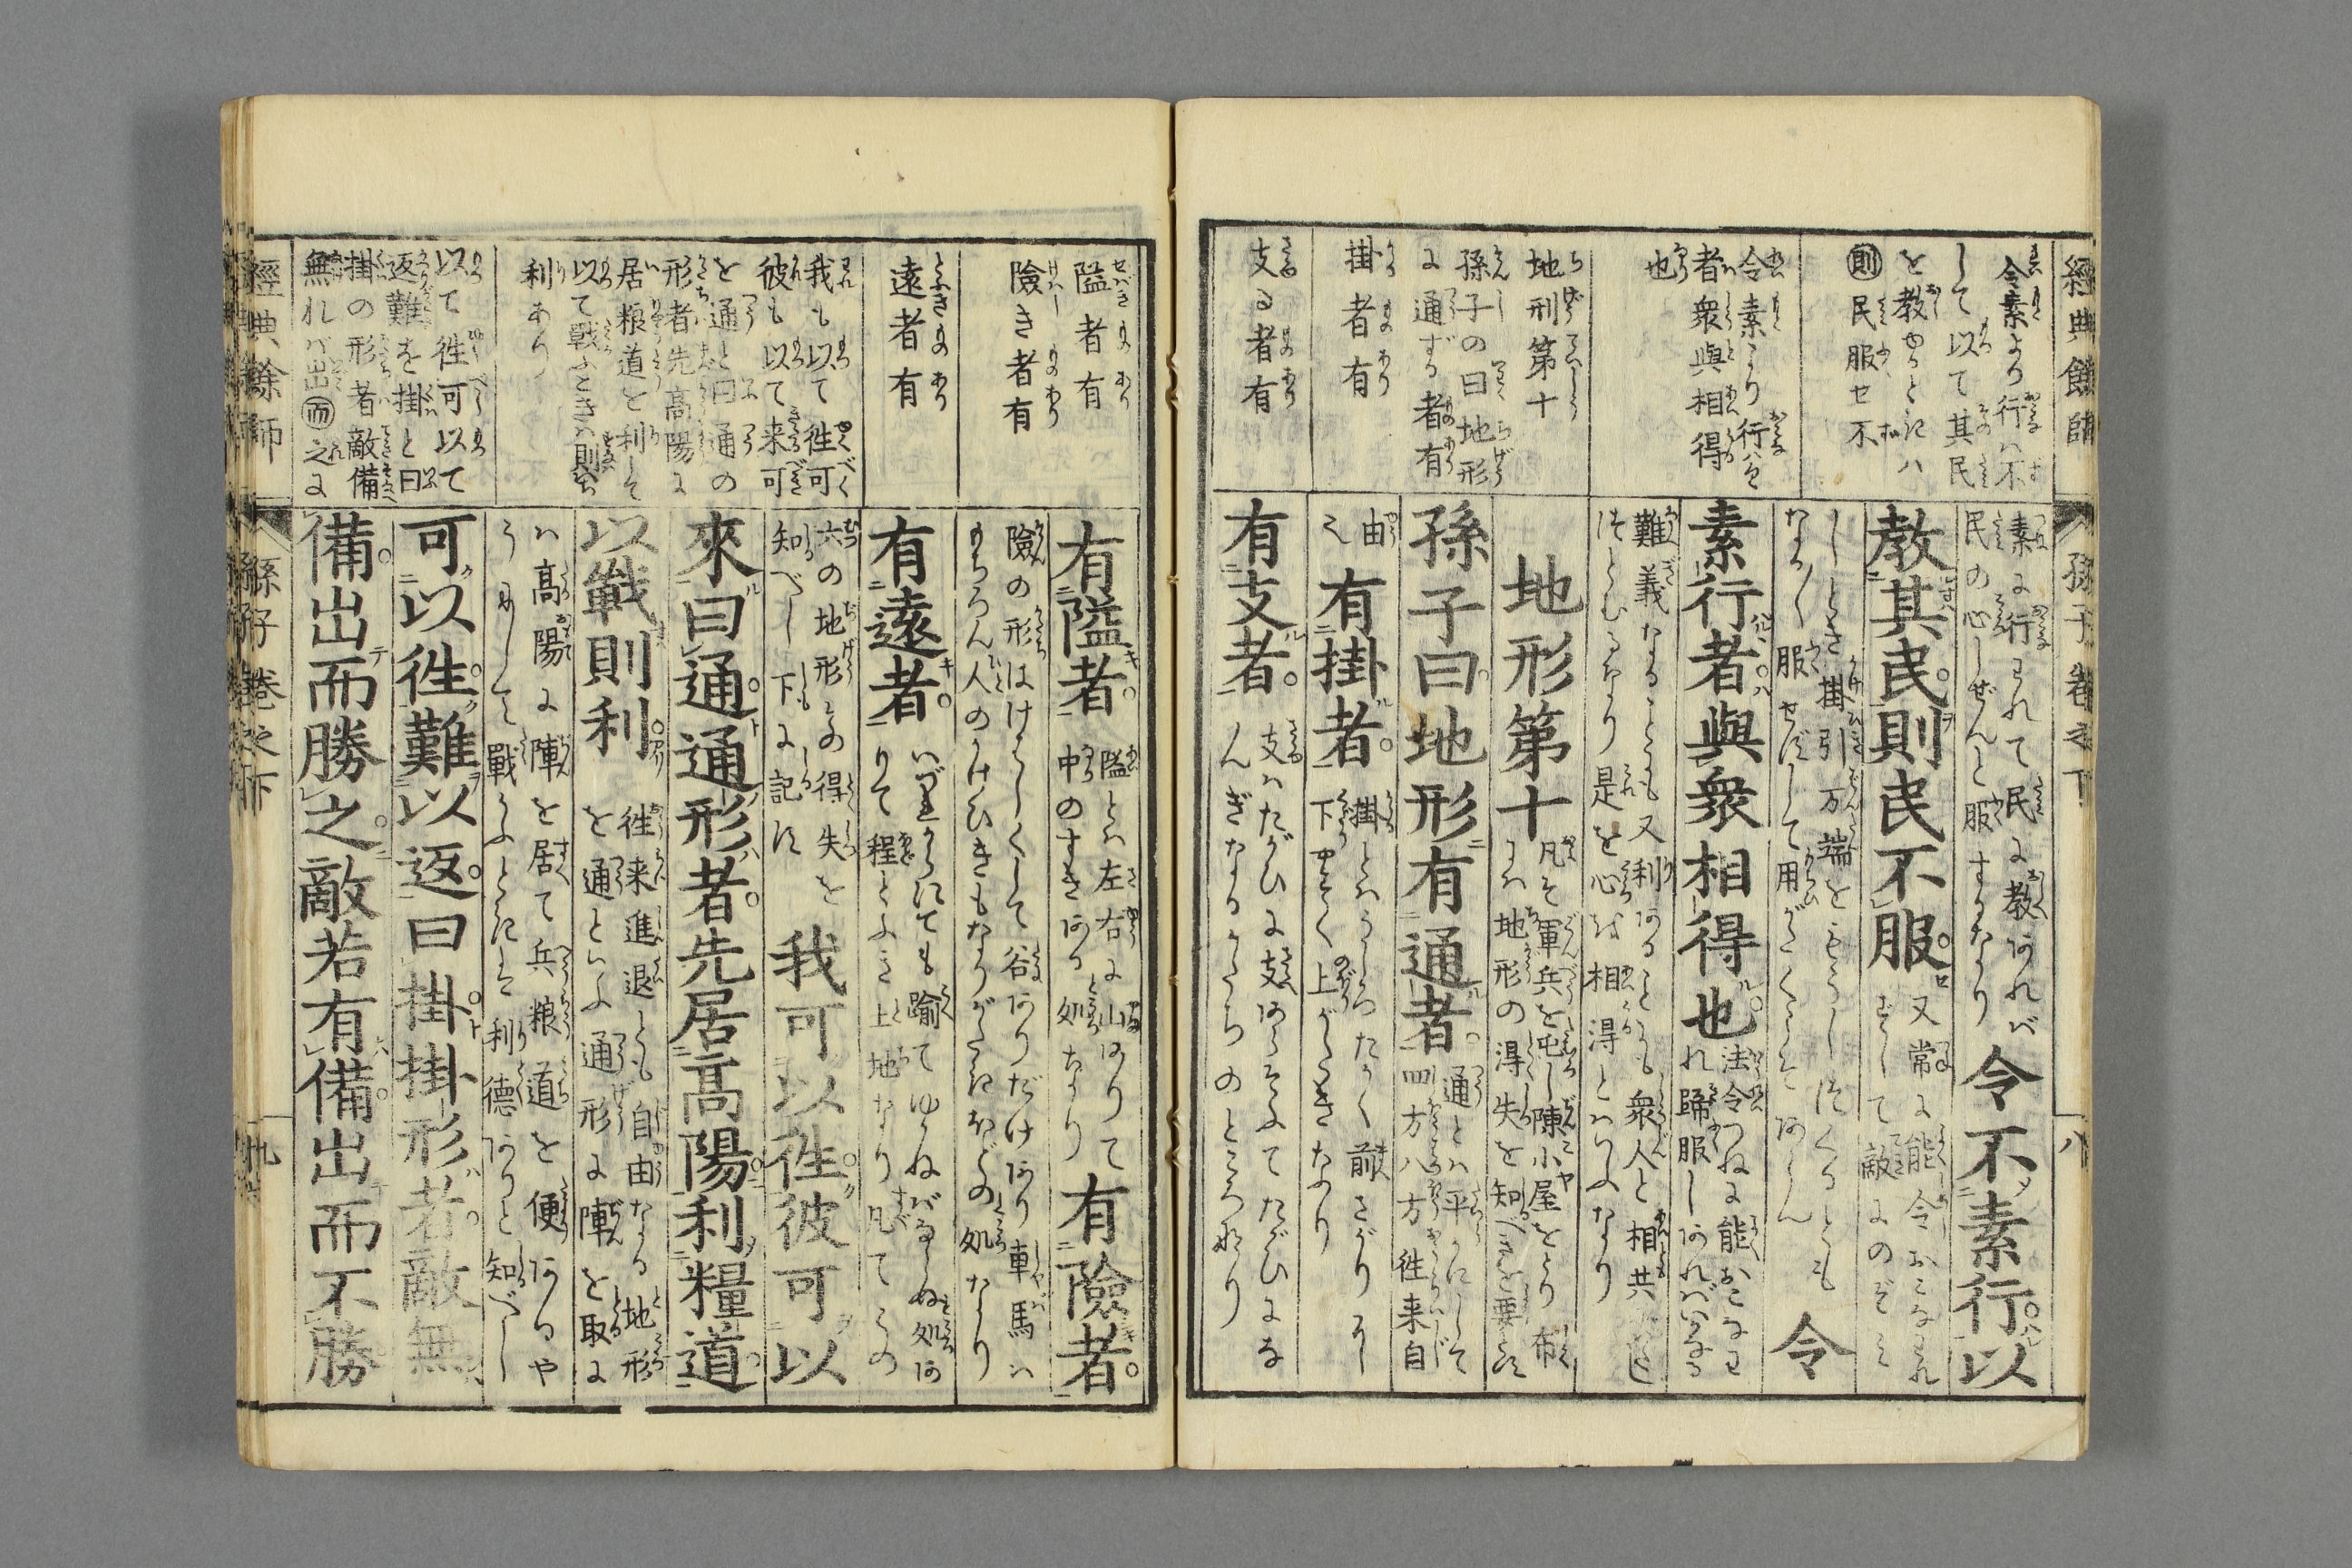 經典餘師
孫子卷之下
八
令素より行ハ不
して以て其民
を教ゆるときハ
則民服セ不
令素より行ハるゝ
者衆與相得
也
地形第十
孫子の曰地形
に通ずる者有
掛る者有
支る者有
素に行われて民に教あれバ
民の心しぜんと服するなり
令不素行以
教其民則民不服
令
素行者與衆相得也
難義なることにも又利あることにも衆人と相共に進
是を心を相得とはいふなり
地形第十
凡そ軍兵を屯し陳小屋をとり布
にハ地形の得失を知べきを要とす
孫子曰地形有通者
通とハ平かにして
四方八方徃来自
由
有掛者
掛とハうしろたかく前さがりにし
下やすく上がたきなり
有支者
支ハたがひに支あらそふてたがひにな
んぎなるかたちのところなり
隘者有
險き者有
遠者有
我も以て徃可
彼も以て来可
を通と曰通の
形者先高陽に
居粮道を利して
以て戰ふときハ則ち
利あり
以て徃可以て
返難を掛と曰
掛の形者敵備
無れバ出而之に
有隘者
隘とハ左右に山ありて
中のすき間ある処なり
有險者
險の形はけはしくして谷ありだけあり車馬ハ
もちろん人のかけひきもなりがたきほどの処なり
有遠者
いづれからにても踰てゆかねばならぬ処あ
りて程とふき土地なり凡てこの
六の地形その得失を
知べし下に記す
我可以徃彼可以
來曰通通形者先居高陽利糧道
以戰則利
徃来進退とも自由なる地形
を通といふ通形に陣を取に
ハ高陽に陣を居て兵粮道を便あるや
うにして戰ふときは利德ありと知べし
可以徃難以返曰掛掛形者敵無
備出而勝之敵若有備出而不勝
經典餘師
孫子卷之下
九